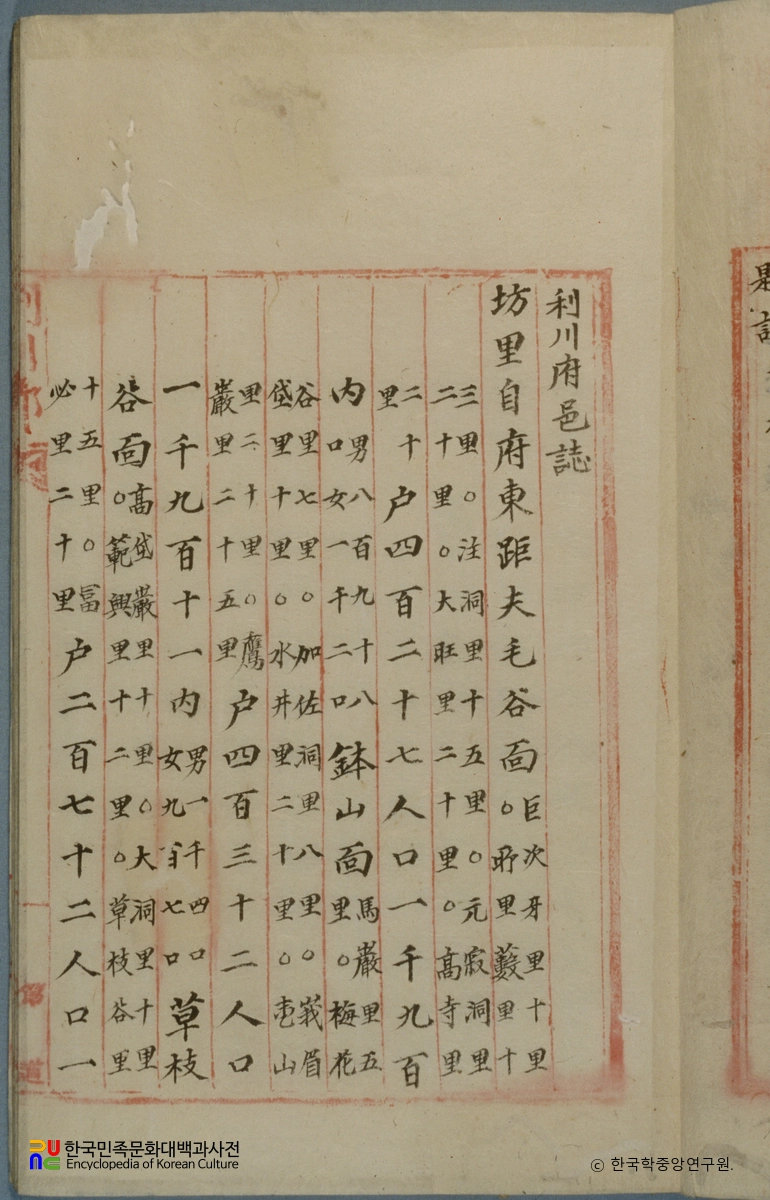 利川府邑誌
坊里自府東距夫毛谷面巨次牙里十里○里藪里十
三里○注洞里十五里○元寂洞里二十里○大旺里二十里○高寺里
二十里户四百二十七人口一千九百
內男八百九十八口女一千二口鉢山面馬巖里五里○梅花
谷里七里○加佐洞里八里○峩眉垈里十里○水井里二十里○山
里二十里○鷹巖里二十五里户四百三十二人口
一千九百十一內男一千四口女九百七口草枝
谷面高垈巖里十里○大洞里十里○範興里十二里○草枝谷里
十五里○冨必里二十里户二百七十二人口一
한국민족문화대백과사전
Encyclopedia of Korean Culture
© 한국학중앙연구원.